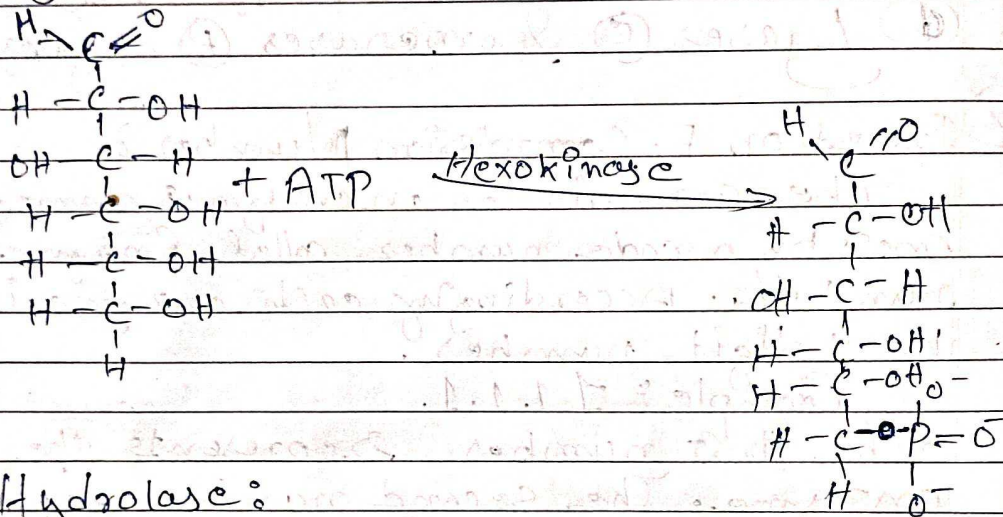 H O
C
H - C - OH
OH - C - H
H - C - OH
H - C - OH
H - C - OH
H
+ ATP
Hexokinase
H O
C
H - C - OH
OH - C - H
H - C - OH
H - C - OH O-
H - C - O - P = O-
H O-
Hydrolase: